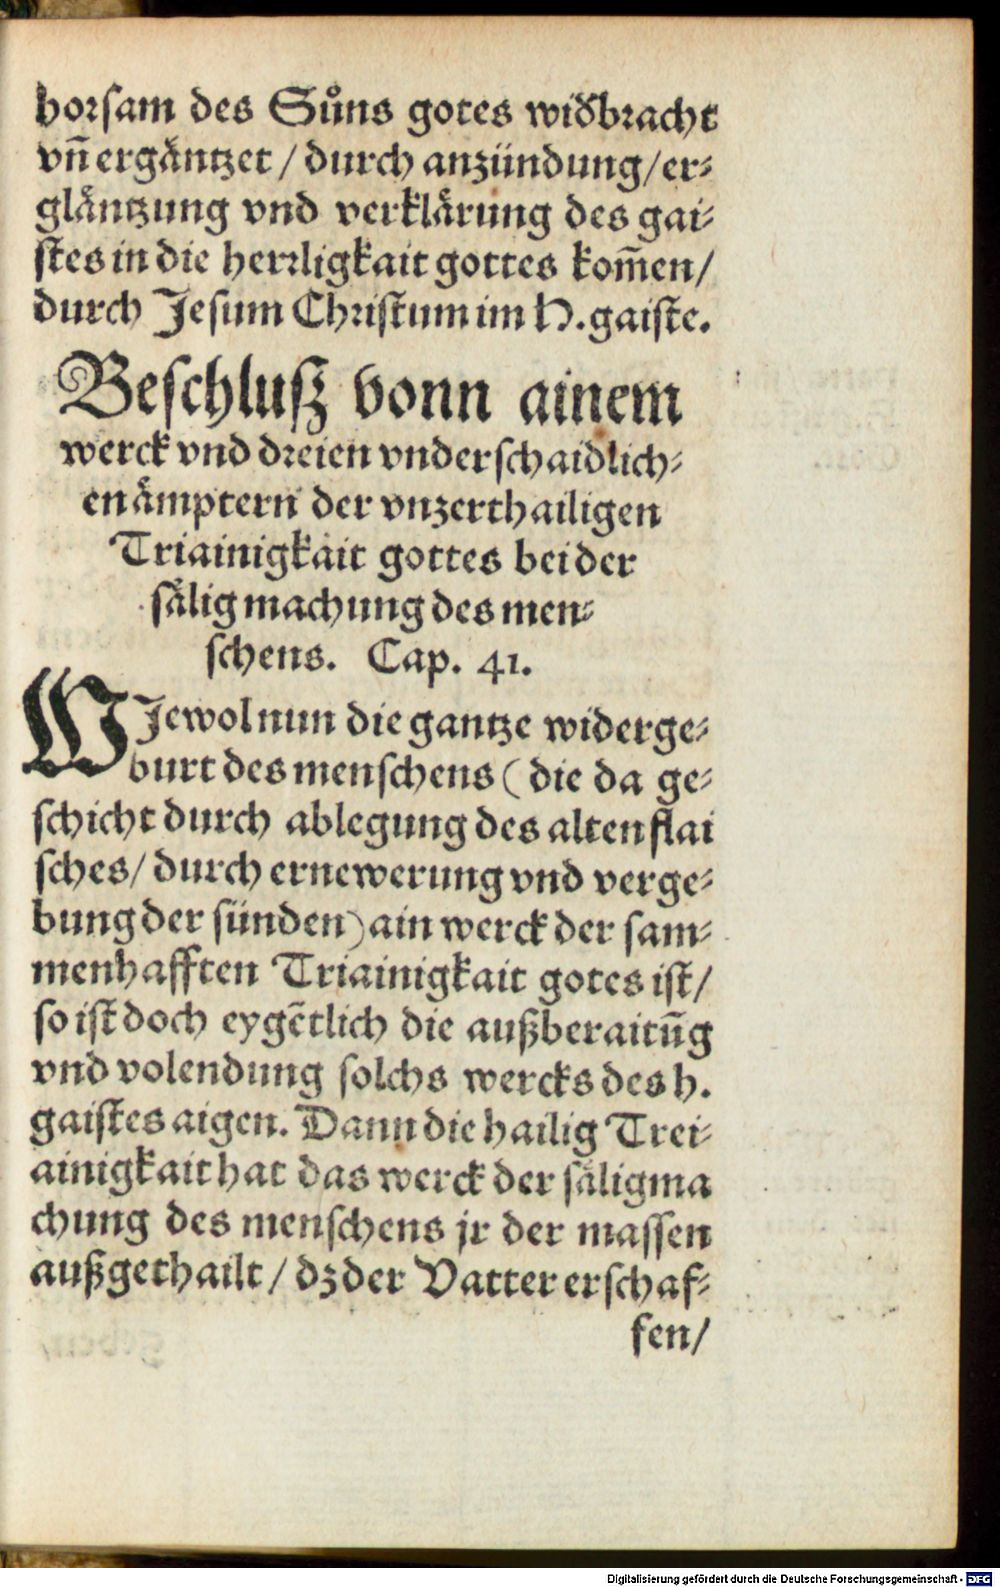 horsam des Sůns gotes widbracht
vñ ergäntzet / durch anzündung / er⸗
gläntzung vnd verklärung des gai⸗
stes in die herrligkait gottes kom̃en /
durch Jesum Christum im H. gaiste.
Beschlusz vonn ainem
werck vnd dreien vnderschaidlich⸗
en ämptern der vnzerthailigen
Triainigkait gottes bei der
sälig machung des men⸗
schens. Cap. 41.
WJewol nun die gantze widerge⸗
burt des menschens ( die da ge⸗
schicht durch ablegung des alten flai
sches / durch ernewerung vnd verge⸗
bung der sünden ) ain werck der sam⸗
menhafften Triainigkait gotes ist /
so ist doch eygẽtlich die außberaitũg
vnd volendung solchs wercks des h.
gaistes aigen. Dann die hailig Trei⸗
ainigkait hat das werck der säligma
chung des menschens jr der massen
außgethailt / dz der Vatter erschaf⸗
fen /
Digitalisierung gefördert durch die Deutsche Forschungsgemeinschaft - DFG